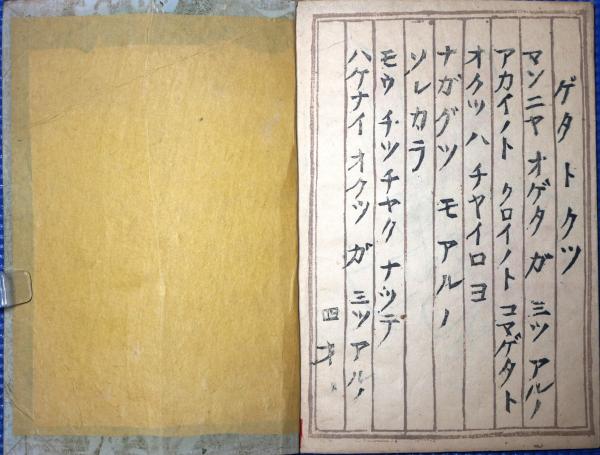 ゲタトクツ
マンニヤ オゲタ ガ ミツ アルノ
アカイノト クロイノト コマゲタト
オクツハ チヤイロヨ
ナガグツ モ アルノ
ソレカラ
モウ チツチヤク ナツテ
ハケナイ オクツ ガ ミツ アルノ
四才、